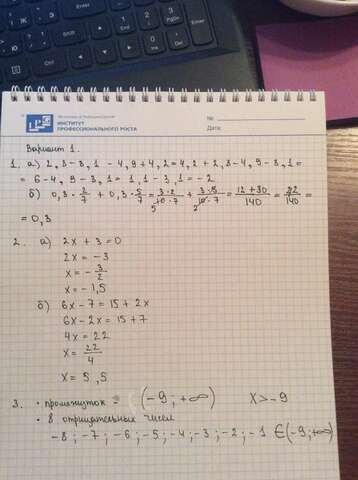 ИНСТИТУТ
ПРОФЕССИОНАЛЬНОГО РОСТА
№:
Дата:
Вариант 1.
1. а) 2,3-8,1-4,9+4,2=4,2+2,3-4,9-8,1=
= 6-4,9-3,1=1,1-3,1=-2
б) 0,3 · 2/7 + 0,3 · 5/7 = 3·2/10·7 + 3·5/10·7 = 12+30/140 = =
= 0,3
2. а) 2x + 3 = 0
2x = -3
x = - 3/2
x = - 1,5
б) 6x - 7 = 15 + 2x
6x - 2x = 15 + 7
4x = 22
x = 22/4
x = 5,5
3. · промежуток = (-9; +∞) x > -9
· 8 отрицательных чисел
-8; -7; -6; -5; -4; -3; -2; -1 ∈ (-9; +∞)